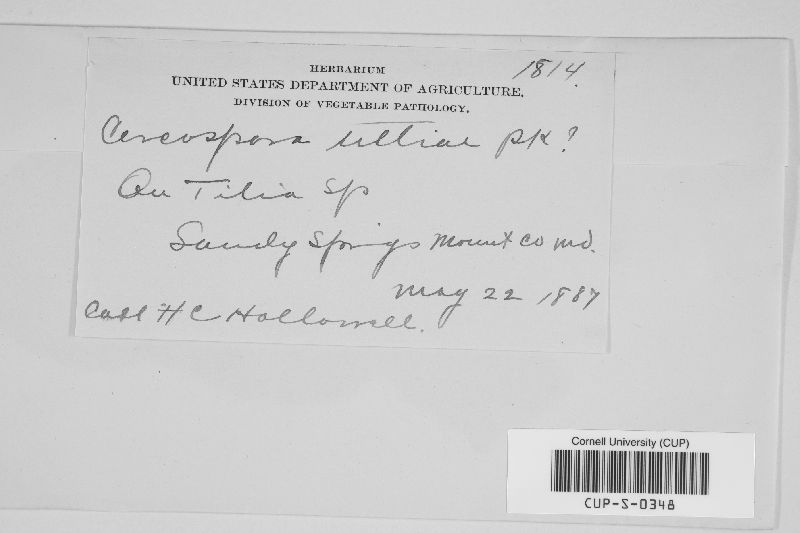 1814.
HERBARIUM
UNITED STATES DEPARTMENT OF AGRICULTURE,
DIVISION OF VEGETABLE PATHOLOGY.
Cercospora tiliae Pk?
On Tilia Sp
Sandy Springs Mount co Md.
May 22 1887
Coll H C Hallowell.
Cornell University (CUP)
CUP-S-0348